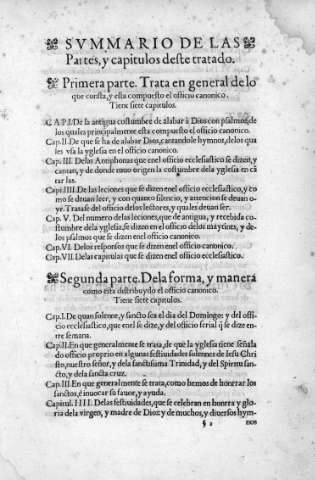 SVMMARIO DE LAS
Partes, y capitulos deste tratado.
Primera parte. Trata en general de lo
que consta, y esta compuesto el officio canonico.
Tiene siete capitulos.
CAP.I. De la antigua costumbre de alabar à Dios con psalmos, de
los quales principalmente esta compuesto el officio canonico.
Cap.II. De que se ha de alabar Dios, cantandole hymnos, de los qua
les vsa la yglesia en el officio canonico.
Cap.III. Delas Antiphonas que enel officio ecclesiastico se dizen, y
cantan, y de donde tuuo origen la costumbre dela yglesia en cā
tarlas.
Cap.IIII. De las leciones que se dizen enel officio ecclesiastico, y co
mo se deuan leer, y con quanto silencio, y attencion se deuan o-
yr. Tratase del officio delos lectores, y quales deuan ser.
Cap.V. Del numero delas leciones, que de antigua, y recebida co-
stumbre dela yglesia, se dizen en el officio delos maytines, y de-
los psalmos que se dizen enel officio canonico.
Cap.VI. Delos responsos que se dizen enel officio canonico.
Cap.VII. Delas capitulas que se dizen enel officio ecclesiastico.
Segunda parte. Dela forma, y manera
como esta distribuydo el officio canonico.
Tiene siete capitulos.
Cap.I. De quan solenne, y sancto sea el dia del Domingo: y del offi-
cio ecclesiastico, que enel se dize, y del officio ferial q̃ se dize en-
tre semana.
Cap.II. En que generalmente se trata, de que la yglesia tiene señala
do officio proprio en algunas festiuidades solennes de Iesu Chri
sto, nuestro señor, y dela sanctissima Trinidad, y del Spiritu san-
cto, y dela sancta cruz.
Cap.III. En que generalmente se trata, como hemos de honrar los
sanctos, è inuocar su fauor, y ayuda.
Capitul.IIII. Delas festiuidades, que se celebran en honra y glo-
ria dela virgen, y madre de Dios: y de muchos, y diuersos hym-
§ 2 nos